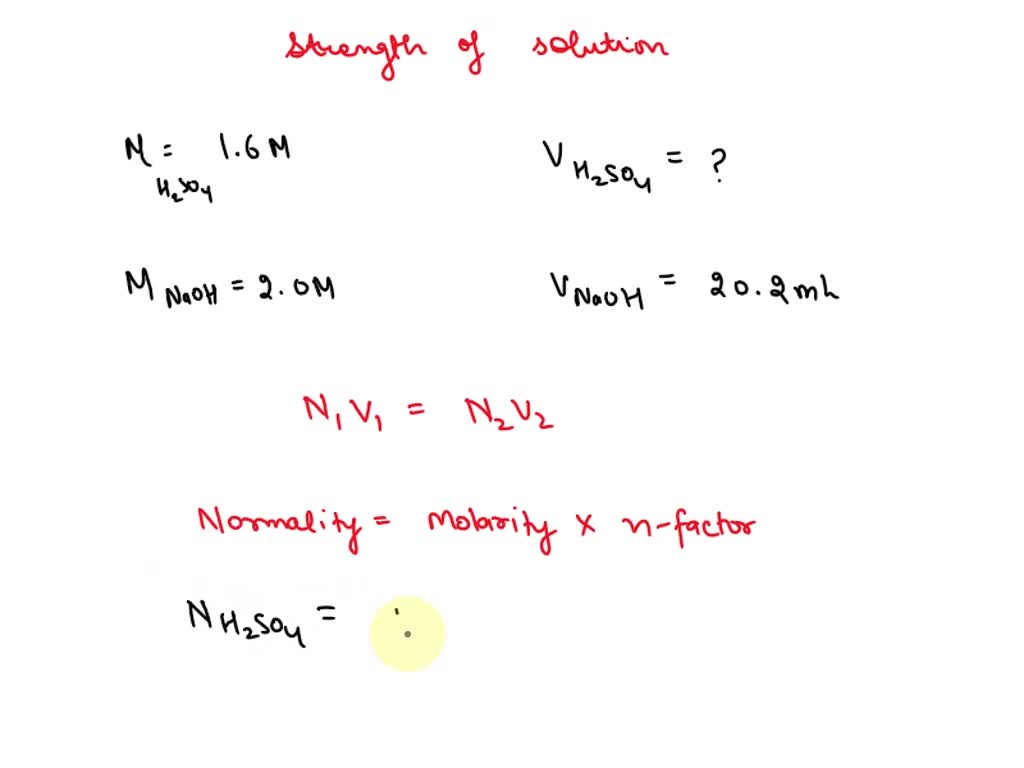 Strength of solution
M H₂SO₄ = 1.6 M
V H₂SO₄ = ?
M NaOH = 2.0M
V NaOH = 20.2 mL
N₁V₁ = N₂V₂
Normality = Molarity × n-factor
N H₂SO₄ =